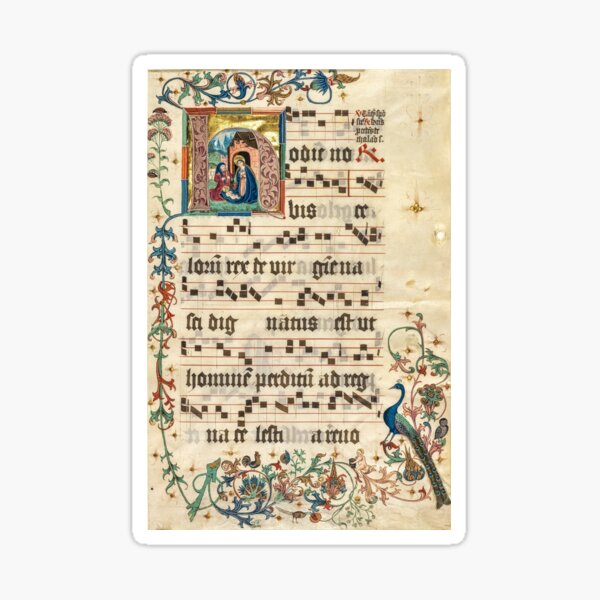 Hodie no ℟.
bis ce
lorū rex de vir gīe na
sci dig natus est ut
hominē perditū ad reg
na ce lesti a reuo